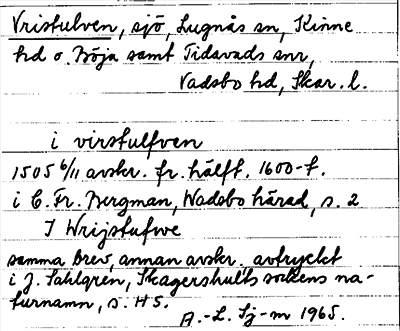 Vristulven, sjö, Lugnås sn, Kinne
hd o. Böja samt Tidavads snr,
Vadsbo hd, Skar. l.
i virstulfven
1505 6/11 avskr. fr. hälft. 1600-t.
i C. Fr. Bergman, Wadsbo härad, s. 2
I Wrijstufwe
samma brev, annan avskr. avtryckt
i J. Sahlgren, Skagershults sockens na-
turnamn, s. H5.
A.-L. Sj-m 1965.